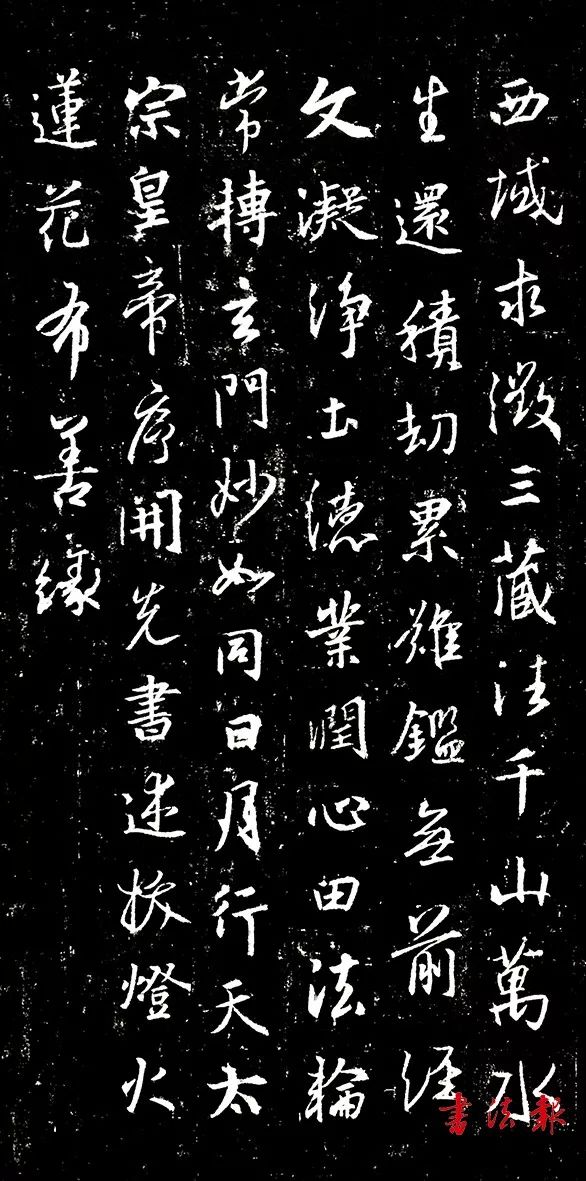 西域求微三藏法千山萬水
生還積劫累難鑑無前經
文凝淨土德業潤心田法輪
常轉玄門妙如同日月行天太
宗皇帝序開先書述燈火
蓮花布善緣
書法報